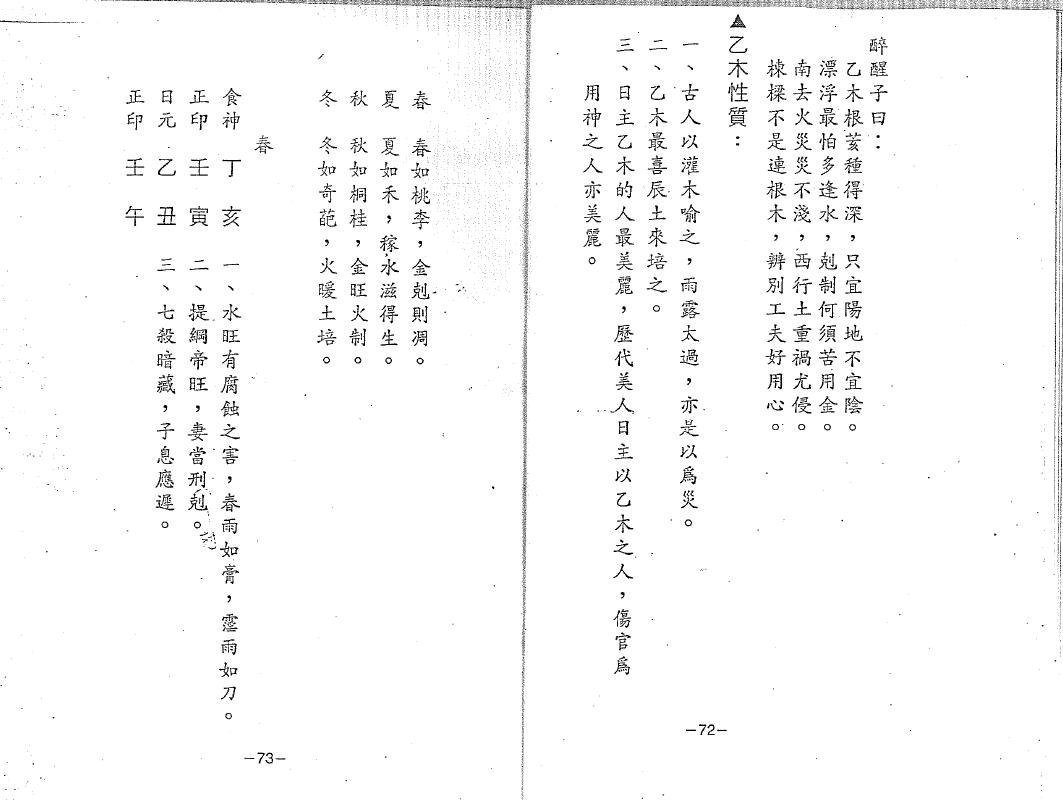 醉醒子曰：
乙木根荄種得深，只宜陽地不宜陰。
漂浮最怕多逢水，剋制何須苦用金。
南去火災災不淺，西行土重禍尤侵。
棟樑不是連根木，辨別工夫好用心。
▲乙木性質：
一、古人以灌木喻之，雨露太過，亦是以為災。
二、乙木最喜辰土來培之。
三、日主乙木的人最美麗，歷代美人日主以乙木之人，傷官為
用神之人亦美麗。
-72-
春 春如桃李，金剋則凋。
夏 夏如禾，稼水滋得生。
秋 秋如桐桂，金旺火制。
冬 冬如奇葩，火暖土培。
春
食神 丁亥 一、水旺有腐蝕之害，春雨如膏，霪雨如刀。
正印 壬寅 二、提綱帝旺，妻當刑剋。
日元 乙丑 三、七殺暗藏，子息應遲。
正印 壬午
-73-